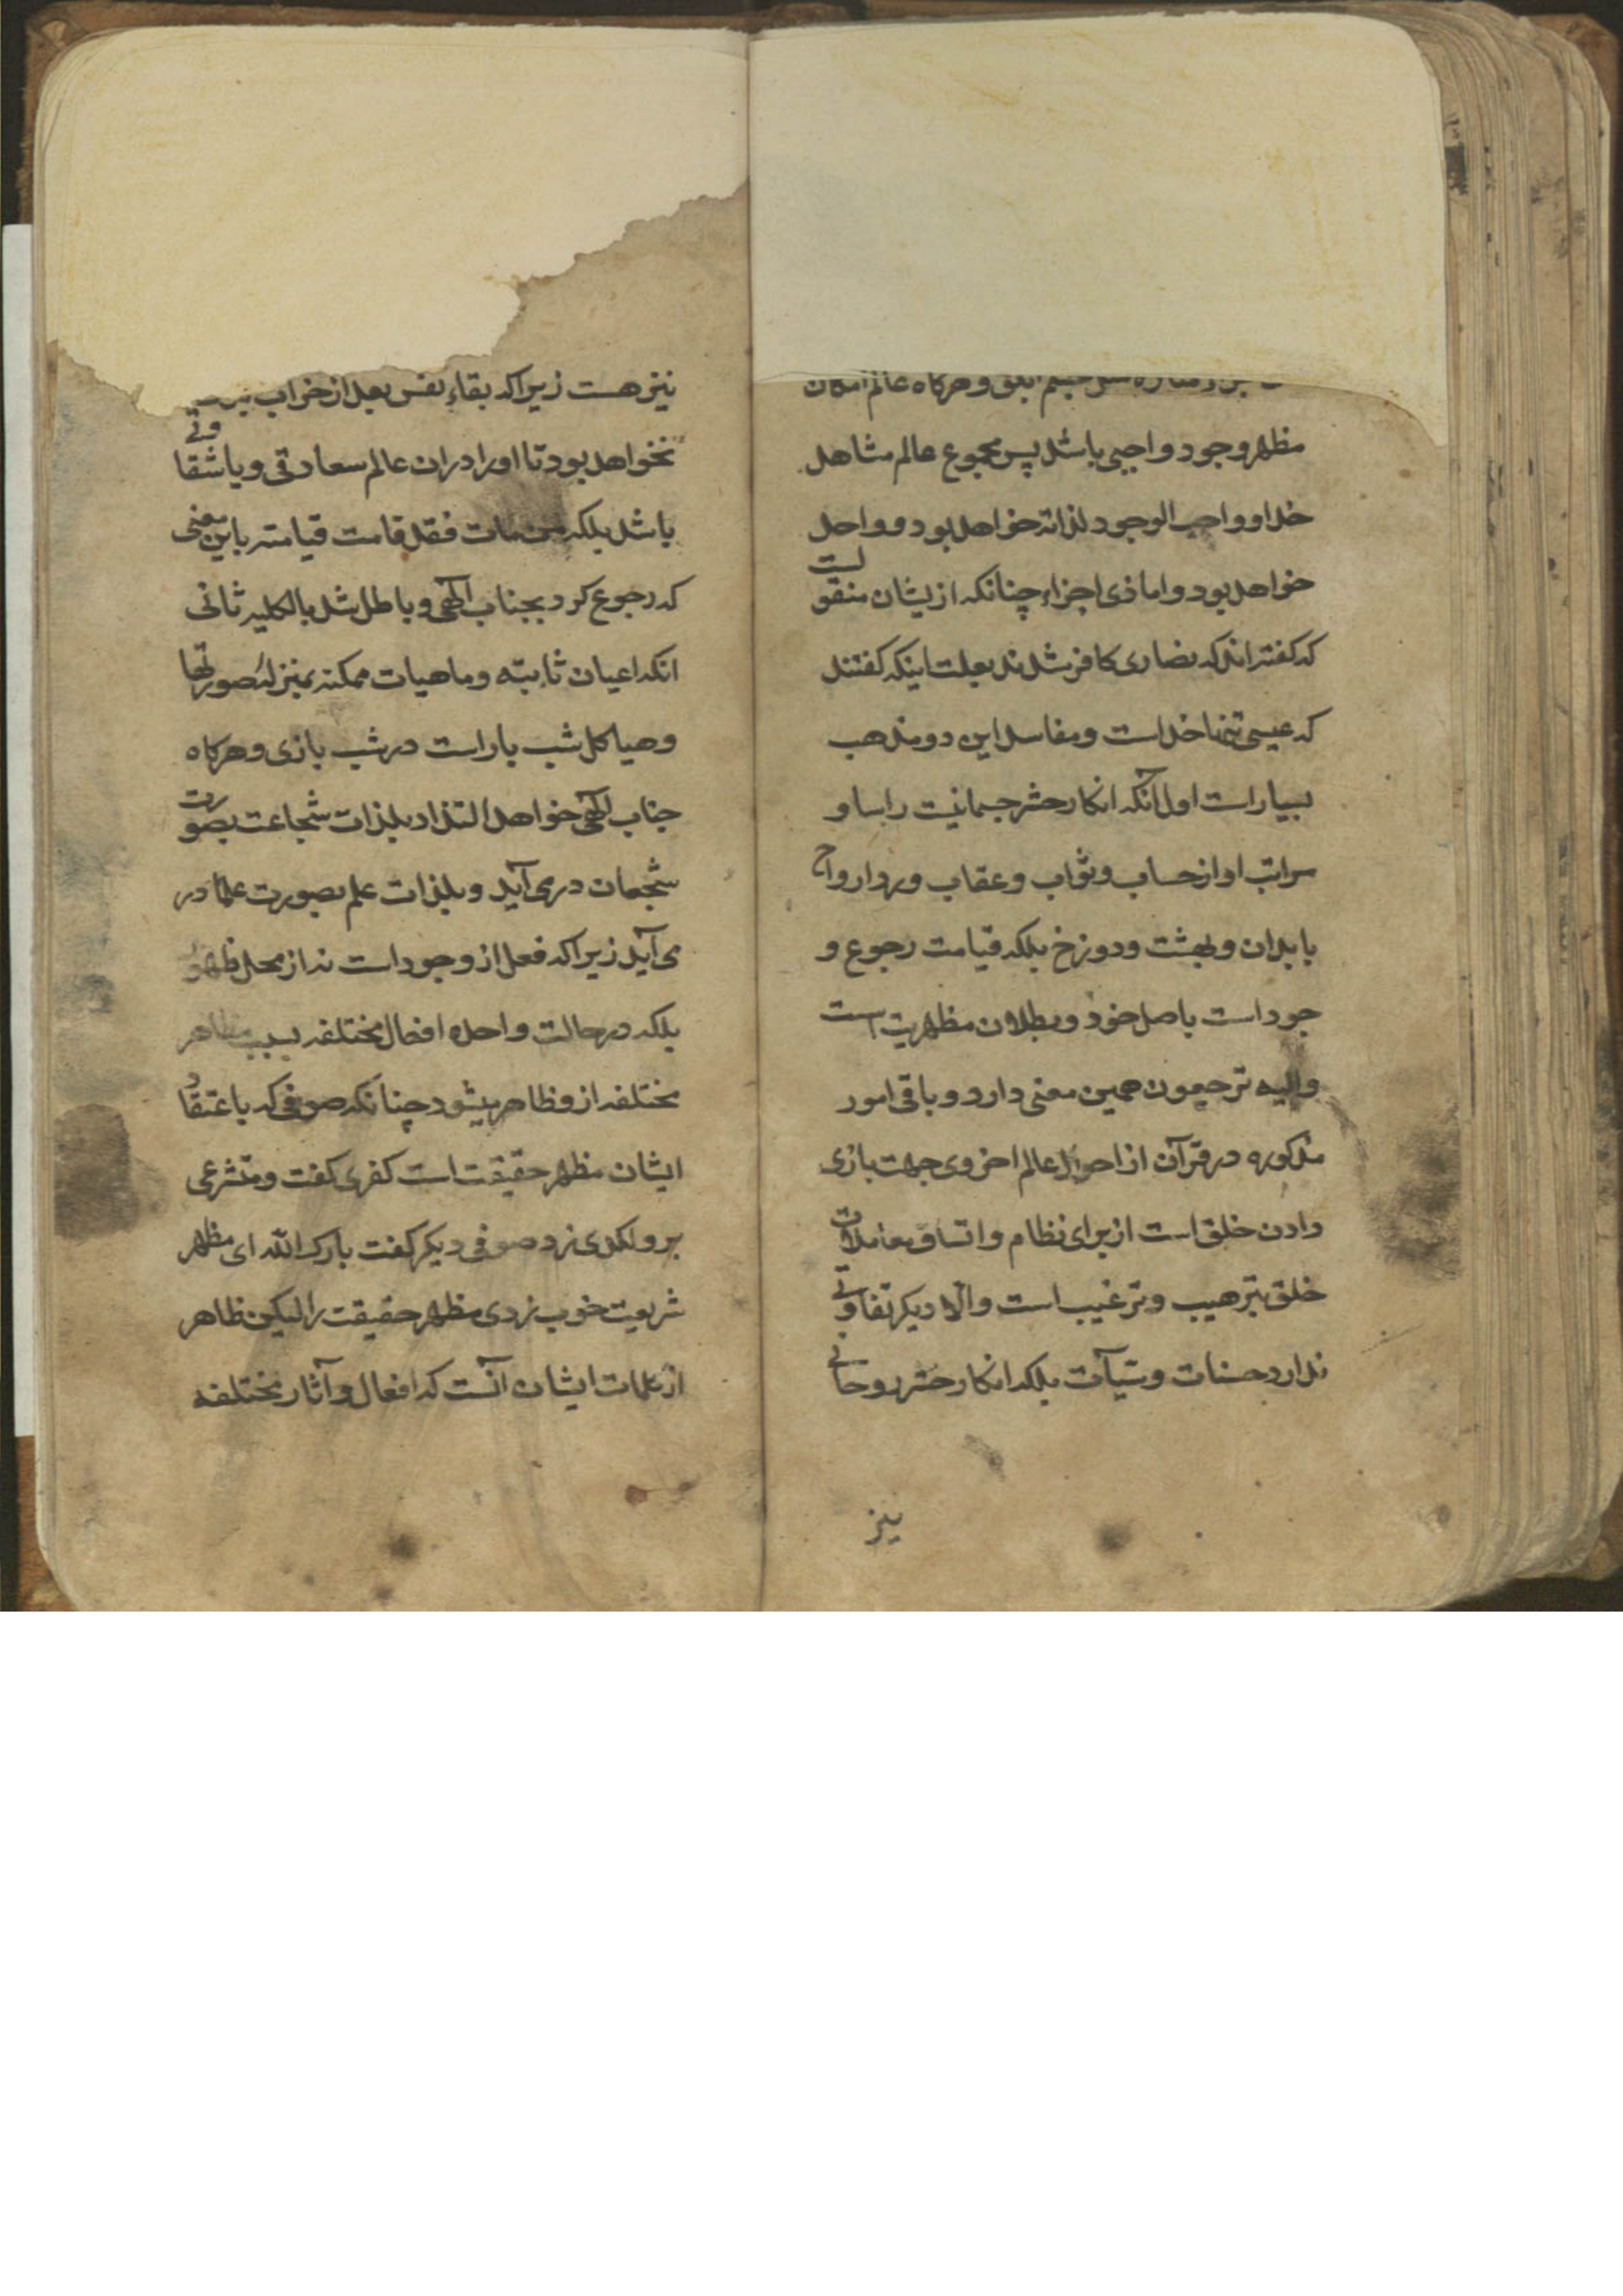 وهرکاه عالم امکان
مظهر وجود واجبی باشد پس مجموع عالم مشاهد
خدا و واجب الوجود لذاته خواهد بود و واحد
خواهد بود و اما ذی اجزاء چنانکه ازیشان منقولست
که کفته اند که نصاری کافر شدند بعلت اینکه کفتند
که عیسی تنها خداست و مفاسد این دو مذهب
بسیار است اول آنکه انکار حشر جسمانیت راسا و
مراتب او از حساب و ثواب و عقاب و ردّ ارواح
بابدان و بهشت و دوزخ بلکه قیامت رجوع و
جود است باصل خود و بطلان مظهریت است
والیه ترجعون همین معنی دارد و باقی امور
مذکوره در قرآن از احوال عالم اخروی جهت بازی
دادن خلق است از برای نظام و اتساق معاملات
خلق بترهیب و ترغیب است والّا دیکر تفاوتی
ندارد حسنات و سیّآت بلکه انکار حشر روحانی
نیز
نیز هست زیراکه بقاء نفس بعد از خراب
نخواهد بود تا اورا دران عالم سعادتی و یا شقاوتی
باشد بلکه من مات فقد قامت قیامته باین معنی
که رجوع کرد بجناب الٓهی و باطل شد بالکلیه ثانی
انکه اعیان ثابته و ماهیات ممکنه بمنزله صورتها
و هیاکل شب بازاست در شب بازی و هرکاه
جناب الٓهی خواهد التذاد بلذات شجاعت بصورت
شجعان در می آید و بلذات علم بصورت علما در
می آید زیراکه فعل از وجود است نه از محل ظهور
بلکه در حالت واحده افعال مختلفه بسبب مظاهر
مختلفه ازو ظاهر میشود چنانکه صوفی که باعتقاد
ایشان مظهر حقیقت است کفری کفت و متشرعی
برو لکدی زد صوفی دیکر کفت بارک الله ای مظهر
شریعت خوب زدی مظهر حقیقت را لیکن ظاهر
از کلمات ایشان آنست که افعال و آثار مختلفه